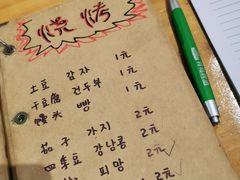 烧烤
土豆 감자 1元
干豆腐 건두부 1元
馒头 빵 1元
茄子 가지 2元
四季豆 강낭콩 2元
피망 2元